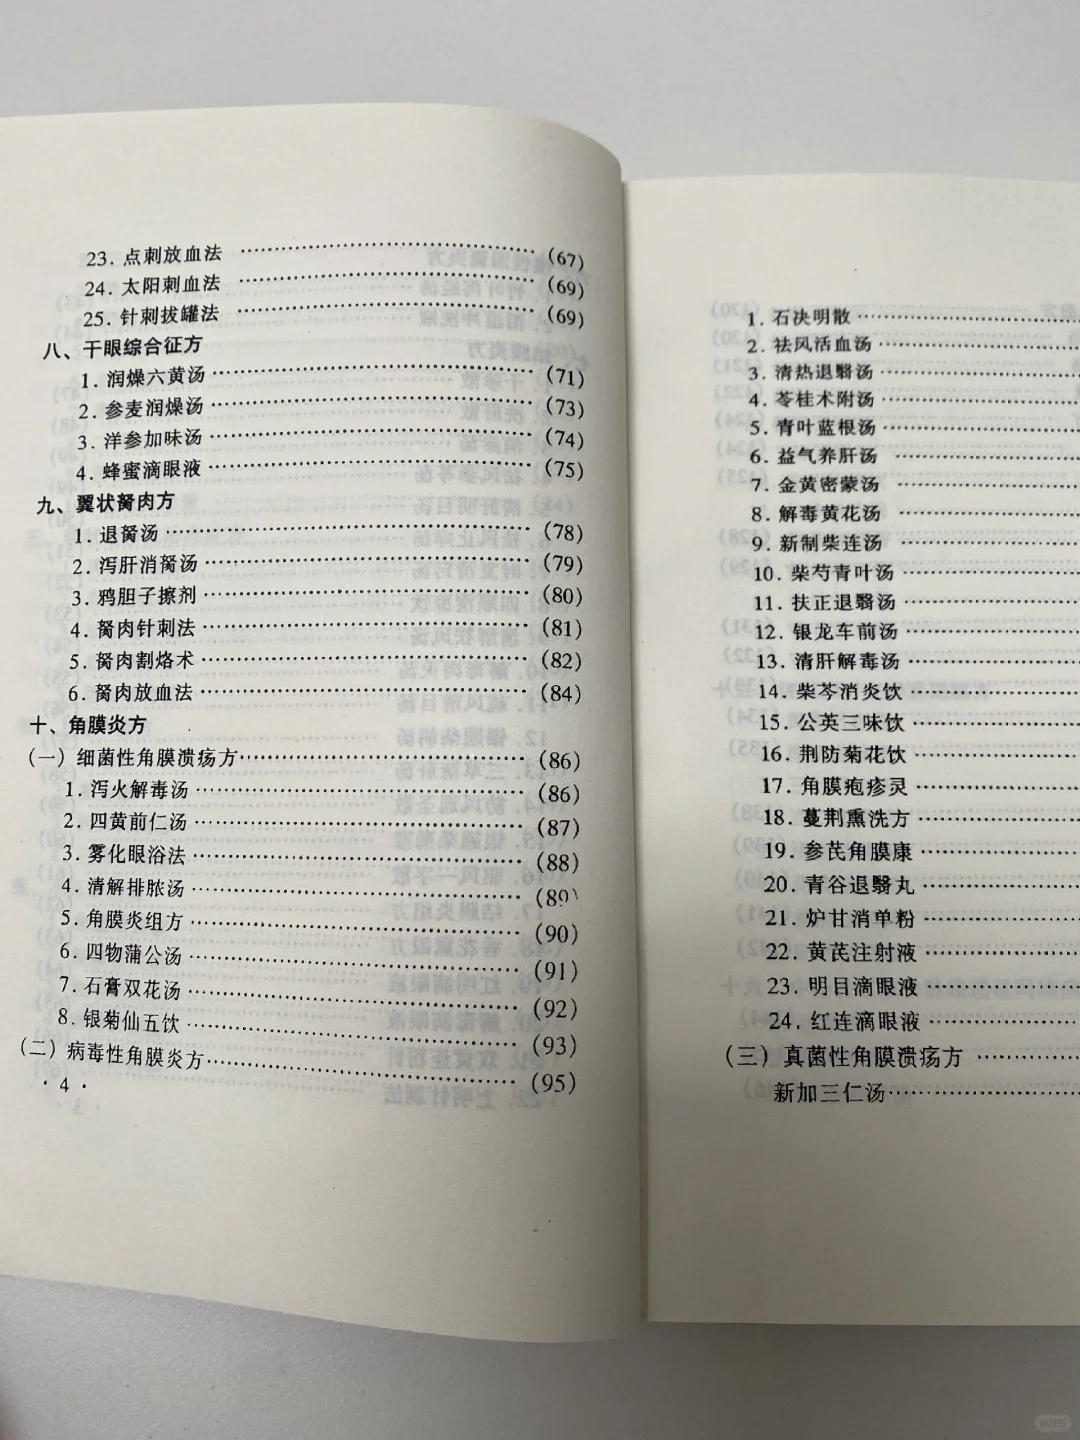 23. 点刺放血法 ……………………………… (67)
24. 太阳刺血法 ……………………………… (69)
25. 针刺拔罐法 ……………………………… (69)
八、干眼综合征方
1. 润燥六黄汤 ……………………………… (71)
2. 参麦润燥汤 ……………………………… (73)
3. 洋参加味汤 ……………………………… (74)
4. 蜂蜜滴眼液 ……………………………… (75)
九、翼状胬肉方
1. 退胬汤 ……………………………… (78)
2. 泻肝消胬汤 ……………………………… (79)
3. 鸦胆子擦剂 ……………………………… (80)
4. 胬肉针刺法 ……………………………… (81)
5. 胬肉割烙术 ……………………………… (82)
6. 胬肉放血法 ……………………………… (84)
十、角膜炎方
(一) 细菌性角膜溃疡方 ……………………………… (86)
1. 泻火解毒汤 ……………………………… (86)
2. 四黄前仁汤 ……………………………… (87)
3. 雾化眼浴法 ……………………………… (88)
4. 清解排脓汤 ……………………………… (89)
5. 角膜炎组方 ……………………………… (90)
6. 四物蒲公汤 ……………………………… (91)
7. 石膏双花汤 ……………………………… (92)
8. 银菊仙五饮 ……………………………… (93)
(二) 病毒性角膜炎方 ……………………………… (95)
· 4 ·
1. 石决明散 ………………
2. 祛风活血汤 ………………
3. 清热退翳汤 ………………
4. 苓桂术附汤 ………………
5. 青叶蓝根汤 ………………
6. 益气养肝汤 ………………
7. 金黄密蒙汤 ………………
8. 解毒黄花汤 ………………
9. 新制柴连汤 ………………
10. 柴芍青叶汤 ………………
11. 扶正退翳汤 ………………
12. 银龙车前汤 ………………
13. 清肝解毒汤 ………………
14. 柴芩消炎饮 ………………
15. 公英三味饮 ………………
16. 荆防菊花饮 ………………
17. 角膜疱疹灵 ………………
18. 蔓荆熏洗方 ………………
19. 参芪角膜康 ………………
20. 青谷退翳丸 ………………
21. 炉甘消单粉 ………………
22. 黄芪注射液 ………………
23. 明目滴眼液 ………………
24. 红连滴眼液 ………………
(三) 真菌性角膜溃疡方 ………………
新加三仁汤 ………………
小红书